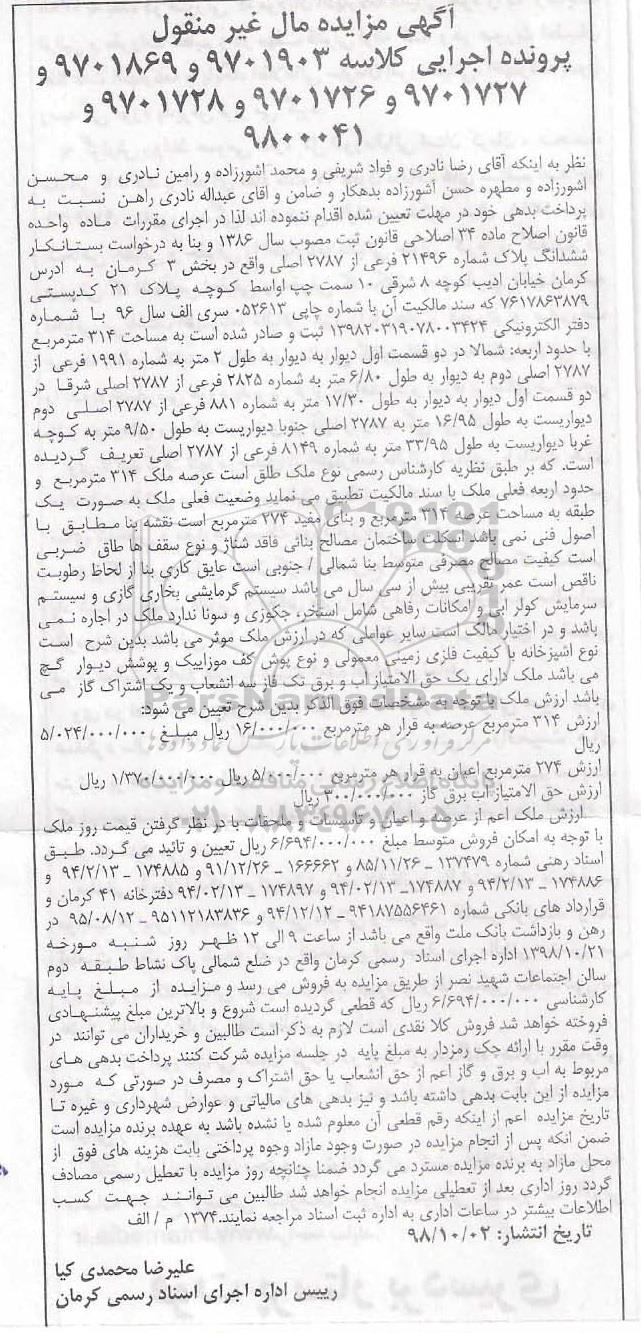 آگهی مزایده مال غیر منقول
پرونده اجرایی کلاسه ۹۷۰۱۹۰۳ و ۹۷۰۱۸۶۹ و
۹۷۰۱۷۲۷ و ۹۷۰۱۷۲۶ و ۹۷۰۱۷۲۸ و
۹۸۰۰۰۴۱
نظر به اینکه آقای رضا نادری و فواد شریفی و محمد آشورزاده و رامین نادری و محسن
آشورزاده و مطهره حسن آشورزاده بدهکار و ضامن و اقای عبداله نادری راهن نسبت به
پرداخت بدهی خود در مهلت تعیین شده اقدام ننموده اند لذا در اجرای مقررات ماده واحده
قانون اصلاح ماده ۳۴ اصلاحی قانون ثبت مصوب سال ۱۳۸۶ و بنا به درخواست بستانکار
ششدانگ پلاک شماره ۲۱۴۹۶ فرعی از ۲۷۸۷ اصلی واقع در بخش ۳ کرمان به ادرس
کرمان خیابان ادیب کوچه ۸ شرقی ۱۰ سمت چپ اواسط کوچه پلاک ۲۱ کدپستی
۷۶۱۷۸۶۳۸۷۹ که سند مالکیت آن با شماره چاپی ۰۵۲۶۱۳ سری الف سال ۹۶ با شماره
دفتر الکترونیکی ۱۳۹۸۲۰۳۱۹۰۷۸۰۰۳۴۲۴ ثبت و صادر شده است به مساحت ۳۱۴ مترمربع
با حدود اربعه: شمالا در دو قسمت اول دیوار به دیوار به طول ۲ متر به شماره ۱۹۹۱ فرعی از
۲۷۸۷ اصلی دوم به دیوار به طول ۶/۸۰ متر به شماره ۲۸۲۵ فرعی از ۲۷۸۷ اصلی شرقا در
دو قسمت اول دیوار به دیوار به طول ۱۷/۳۰ متر به شماره ۸۸۱ فرعی از ۲۷۸۷ اصلی دوم
دیواریست به طول ۱۶/۹۵ متر به ۲۷۸۷ اصلی جنوبا دیواریست به طول ۹/۵۰ متر به کوچه
غربا دیواریست به طول ۳۳/۹۵ متر به شماره ۸۱۴۹ فرعی از ۲۷۸۷ اصلی تعریف گردیده
است. که بر طبق نظریه کارشناس رسمی نوع ملک طلق است عرصه ملک ۳۱۴ مترمربع و
حدود اربعه فعلی ملک با سند مالکیت تطبیق می نماید وضعیت فعلی ملک به صورت یک
طبقه به مساحت عرصه ۳۱۴ مترمربع و بنای مفید ۲۷۴ مترمربع است نقشه بنا مطابق با
اصول فنی نمی باشد اسکلت ساختمان مصالح بنائی فاقد شناژ و نوع سقف ها طاق ضربی
است کیفیت مصالح مصرفی متوسط بنا شمالی / جنوبی است عایق کاری بنا از لحاظ رطوبت
ناقص است عمر تقریبی بیش از سی سال می باشد سیستم گرمایشی بخاری گازی و سیستم
سرمایش کولر ابی و امکانات رفاهی شامل استخر، جکوزی و سونا ندارد ملک در اجاره نمی
باشد و در اختیار مالک است سایر عواملی که در ارزش ملک موثر می باشد بدین شرح است
نوع اشپزخانه با کیفیت فلزی زمینی معمولی و نوع پوش کف موزاییک و پوشش دیوار گچ
می باشد ملک دارای یک حق الامتیاز آب و برق تک فاز سه انشعاب و یک اشتراک گاز می
باشد ارزش ملک با توجه به مشخصات فوق الذکر بدین شرح تعیین می شود:
ارزش ۳۱۴ مترمربع عرصه به قرار هر مترمربع ۱۶/۰۰۰/۰۰۰ ریال مبلغ ۵/۰۲۴/۰۰۰/۰۰۰
ریال
ارزش ۲۷۴ مترمربع اعیان به قرار هر مترمربع ۵/۰۰۰/۰۰۰ ریال ۱/۳۷۰/۰۰۰/۰۰۰ ریال
ارزش حق الامتیاز آب برق گاز ۳۰۰/۰۰۰/۰۰۰ ریال
ارزش ملک اعم از عرصه و اعیان و تاسیسات و ملحقات با در نظر گرفتن قیمت روز ملک
با توجه به امکان فروش متوسط مبلغ ۶/۶۹۴/۰۰۰/۰۰۰ ریال تعیین و تائید می گردد. طبق
اسناد رهنی شماره ۱۳۷۴۷۹ – ۸۵/۱۱/۲۶ و ۱۶۶۶۶۲ – ۹۱/۱۲/۲۶ و ۱۷۴۸۸۵ – ۹۴/۲/۱۳ و
۱۷۴۸۸۶ – ۹۴/۲/۱۳ و ۱۷۴۸۸۷– ۹۴/۰۲/۱۳ و ۱۷۴۸۹۷ – ۹۴/۰۲/۱۳ دفترخانه ۴۱ کرمان و
قرارداد های بانکی شماره ۹۴۱۸۷۵۵۶۴۶۱ – ۹۴/۱۲/۱۲ و ۹۵۱۱۲۱۸۳۸۳۶ – ۹۵/۰۸/۱۲ در
رهن و بازداشت بانک ملت واقع می باشد از ساعت ۹ الی ۱۲ ظهر روز شنبه مورخه
۱۳۹۸/۱۰/۲۱ اداره اجرای اسناد رسمی کرمان واقع در ضلع شمالی پاک نشاط طبقه دوم
سالن اجتماعات شهید نصر از طریق مزایده به فروش می رسد و مزایده از مبلغ پایه
کارشناسی ۶/۶۹۴/۰۰۰/۰۰۰ ریال که قطعی گردیده است شروع و بالاترین مبلغ پیشنهادی
فروخته خواهد شد فروش کلا نقدی است لازم به ذکر است طالبین و خریداران می توانند در
وقت مقرر با ارائه چک رمزدار به مبلغ پایه در جلسه مزایده شرکت کنند پرداخت بدهی های
مربوط به اب و برق و گاز اعم از حق انشعاب یا حق اشتراک و مصرف در صورتی که مورد
مزایده از این بابت بدهی داشته باشد و نیز بدهی های مالیاتی و عوارض شهرداری و غیره تا
تاریخ مزایده اعم از اینکه رقم قطعی آن معلوم شده یا نشده باشد به عهده برنده مزایده است
ضمن انکه پس از انجام مزایده در صورت وجود مازاد وجوه پرداختی بابت هزینه های فوق از
محل مازاد به برنده مزایده مسترد می گردد ضمنا چنانچه روز مزایده با تعطیل رسمی مصادف
گردد روز اداری بعد از تعطیلی مزایده انجام خواهد شد طالبین می توانند جهت کسب
اطلاعات بیشتر در ساعات اداری به اداره ثبت اسناد مراجعه نمایند.۱۳۷۴ م / الف
تاریخ انتشار: ۹۸/۱۰/۰۲
علیرضا محمدی کیا
رییس اداره اجرای اسناد رسمی کرمان